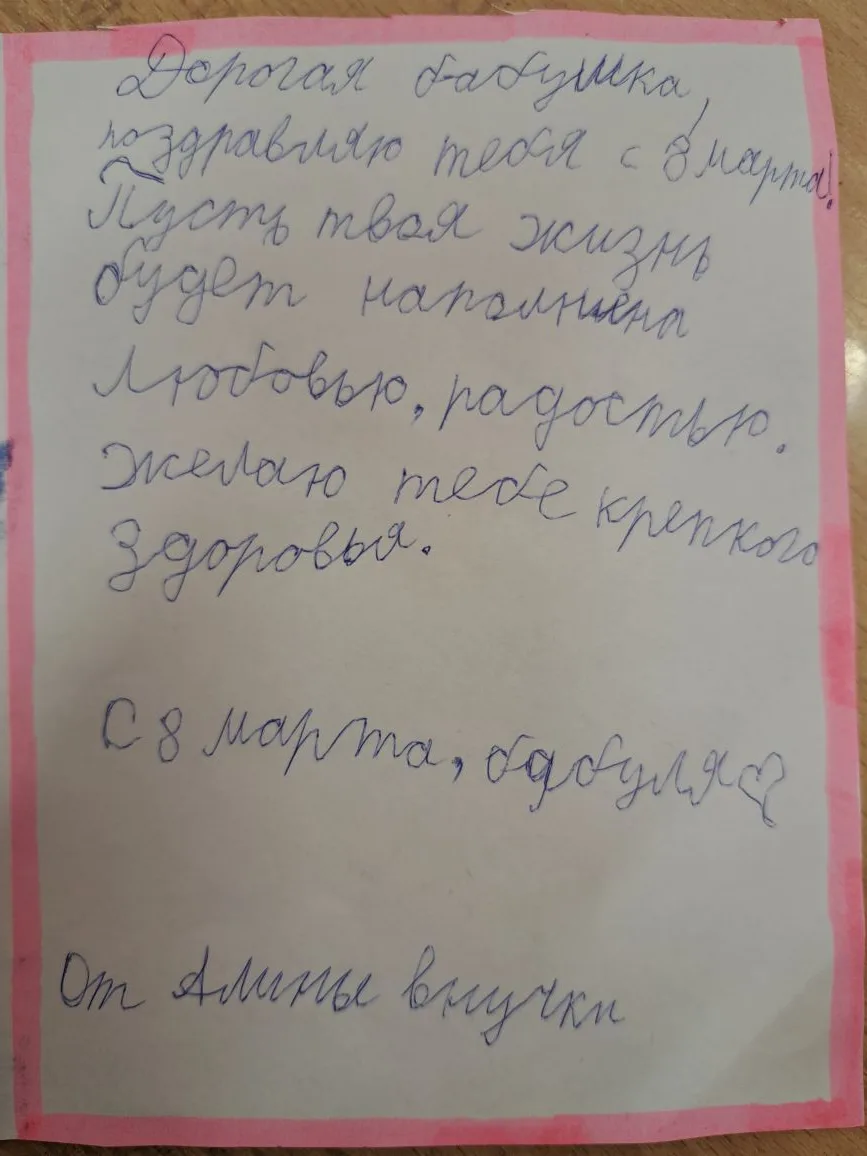 Дорогая бабушка,
поздравляю тебя с 8 марта!
Пусть твоя жизнь
будет наполнена
любовью, радостью.
Желаю тебе крепкого
здоровья.
С 8 марта, бабуля♡
От Алины внучки